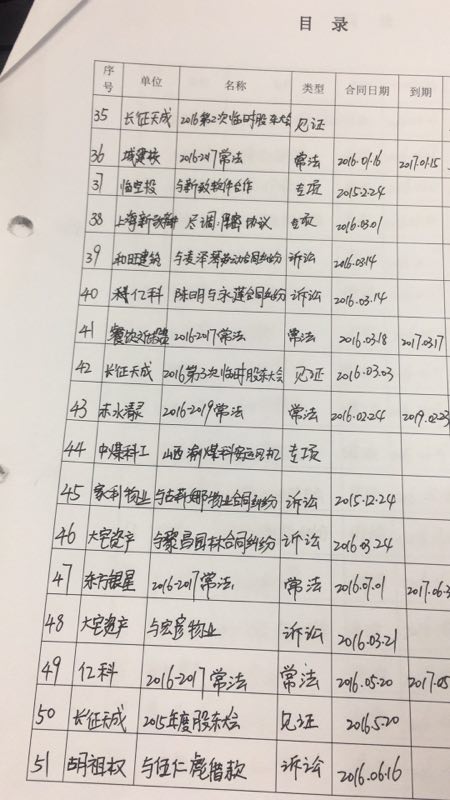 目 录
序号 单位 名称 类型 合同日期 到期
35 长征天成 2016第2次临时股东大会 见证
36 2016-2017常法 常法 2016.01.16 2017.01.15
37 临空投 与新致软件合作 专项 2015.2.24
38 尽调、保密协议 专项 2016.03.01
39 和旺建筑 与麦泽琴劳动合同纠纷 诉讼 2016.03.14
40 亿科 陈明与永莲合同纠纷 诉讼 2016.03.14
41 2016-2017常法 常法 2016.03.18 2017.03.17
42 长征天成 2016第3次临时股东大会 见证 2016.03.03
43 赤水 2016-2019常法 常法 2016.02.24 2019.02.23
44 中煤科工 山西 专项
45 家利物业 与古莉娜物业合同纠纷 诉讼 2015.12.24
46 大宅资产 与黎昌园林合同纠纷 诉讼 2016.03.24
47 东方银星 2016-2017常法 常法 2016.07.01 2017.06.3
48 大宅资产 与宏彦物业 诉讼 2016.03.21
49 亿科 2016-2017常法 常法 2016.05.20 2017.05
50 长征天成 2015年度股东大会 见证 2016.5.20
51 胡祖权 与伍仁彪借款 诉讼 2016.06.16